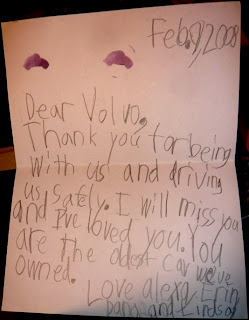 Feb. 9, 2008
Dear Volvo,
Thank you for being
with us and driving
us safely. I will miss you
and I've loved you. You
are the oldest car we've
owned.
Love alexa, Erin
and Lindsay